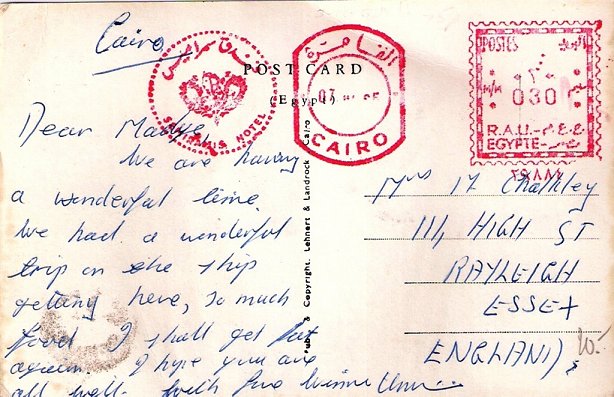 Cairo
فندق سميراميس
SEMIRAMIS HOTEL
POST CARD
(Egypt)
القاهرة
CAIRO
POSTES
030
R.A.U. ج.ع.م
EGYPTE مصر
Publ. & Copyright. Lehnert & Landrock Cairo
Dear Madge
We are having
a wonderful time.
We had a wonderful
trip on the ship
getting here, so much
food I shall get fat
again. I hope you are
all well.
Mrs M Chalkley
111, HIGH ST
RAYLEIGH
ESSEX
ENGLAND